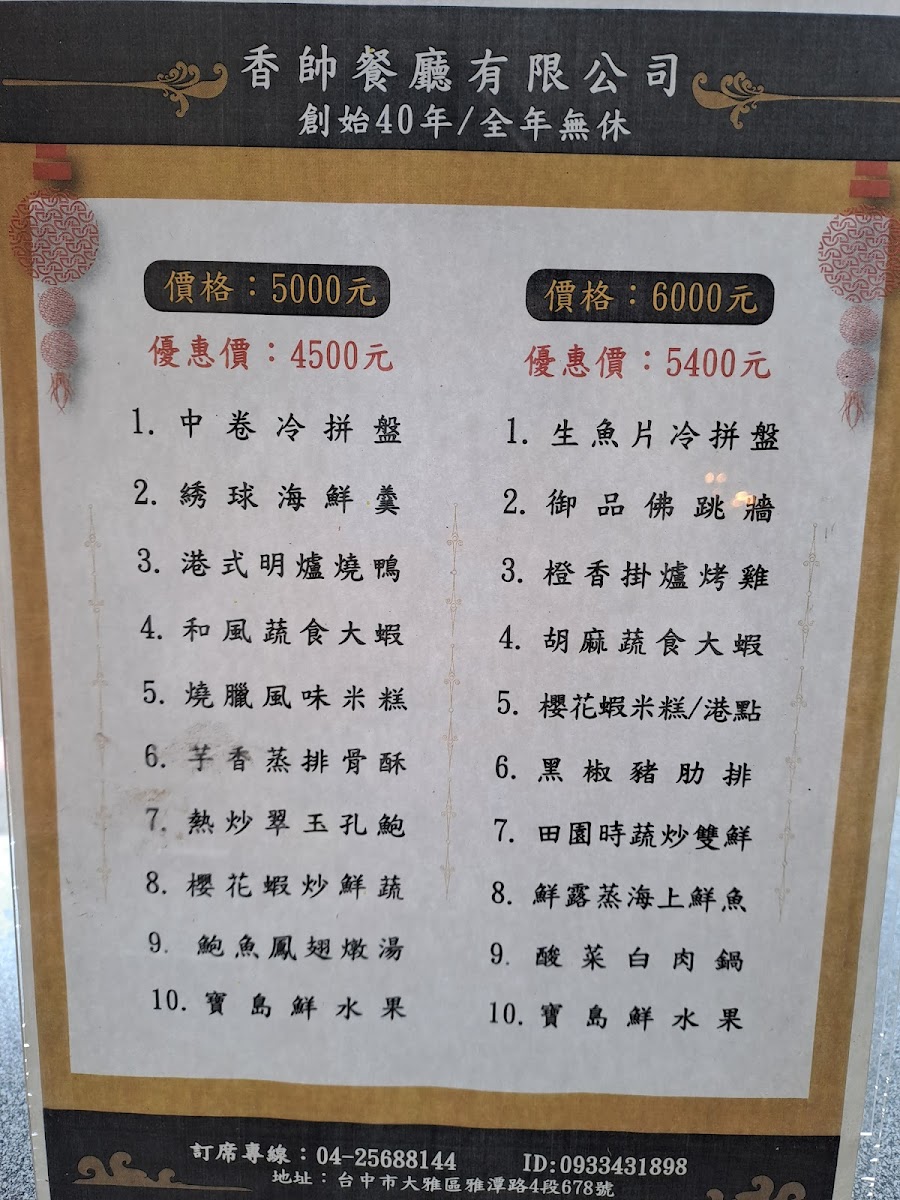 香帥餐廳有限公司
創始40年/全年無休
價格：5000元
優惠價：4500元
1. 中卷冷拼盤
2. 綉球海鮮羹
3. 港式明爐燒鴨
4. 和風蔬食大蝦
5. 燒臘風味米糕
6. 芋香蒸排骨酥
7. 熱炒翠玉孔鮑
8. 櫻花蝦炒鮮蔬
9. 鮑魚鳳翅燉湯
10. 寶島鮮水果
價格：6000元
優惠價：5400元
1. 生魚片冷拼盤
2. 御品佛跳牆
3. 橙香掛爐烤雞
4. 胡麻蔬食大蝦
5. 櫻花蝦米糕/港點
6. 黑椒豬肋排
7. 田園時蔬炒雙鮮
8. 鮮露蒸海上鮮魚
9. 酸菜白肉鍋
10. 寶島鮮水果
訂席專線：04-25688144 ID:0933431898
地址：台中市大雅區雅潭路4段678號